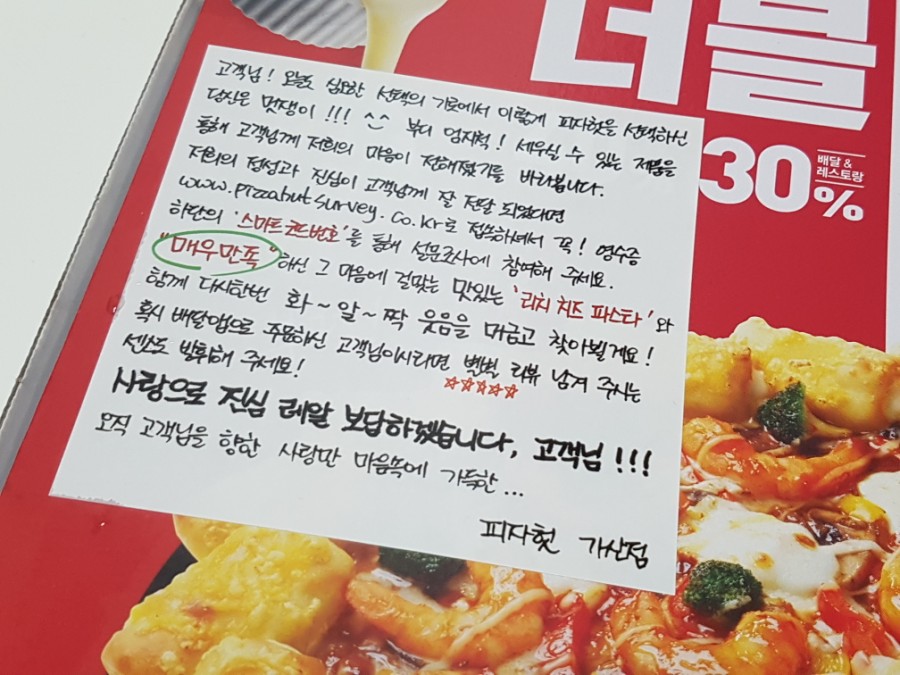 더블
30%
배달 &
레스토랑
고객님! 오늘도 심오한 선택의 기로에서 이렇게 피자헛을 선택하신
당신은 멋쟁이!!! ^^ 부디 엄지척! 세우실 수 있는 제품을
통해 고객님께 저희의 마음이 전해졌기를 바라봅니다.
저희의 정성과 진심이 고객님께 잘 전달 되었다면
www.pizzahutsurvey.co.kr로 접속하셔서 꼭! 영수증
하단의 '스마트 코드번호'를 통해 설문조사에 참여해 주세요.
"매우만족" 하신 그 마음에 걸맞는 맛있는 '리치 치즈 파스타'와
함께 다시한번 화~알~짝 웃음을 머금고 찾아뵐게요!
혹시 배달앱으로 주문하신 고객님이시라면 별별 리뷰 남겨 주시는
☆☆☆☆☆
센스도 발휘해 주세요!
사랑으로 진심 레알 보답하겠습니다, 고객님!!!
오직 고객님을 향한 사랑만 마음속에 가득한...
피자헛 가산점